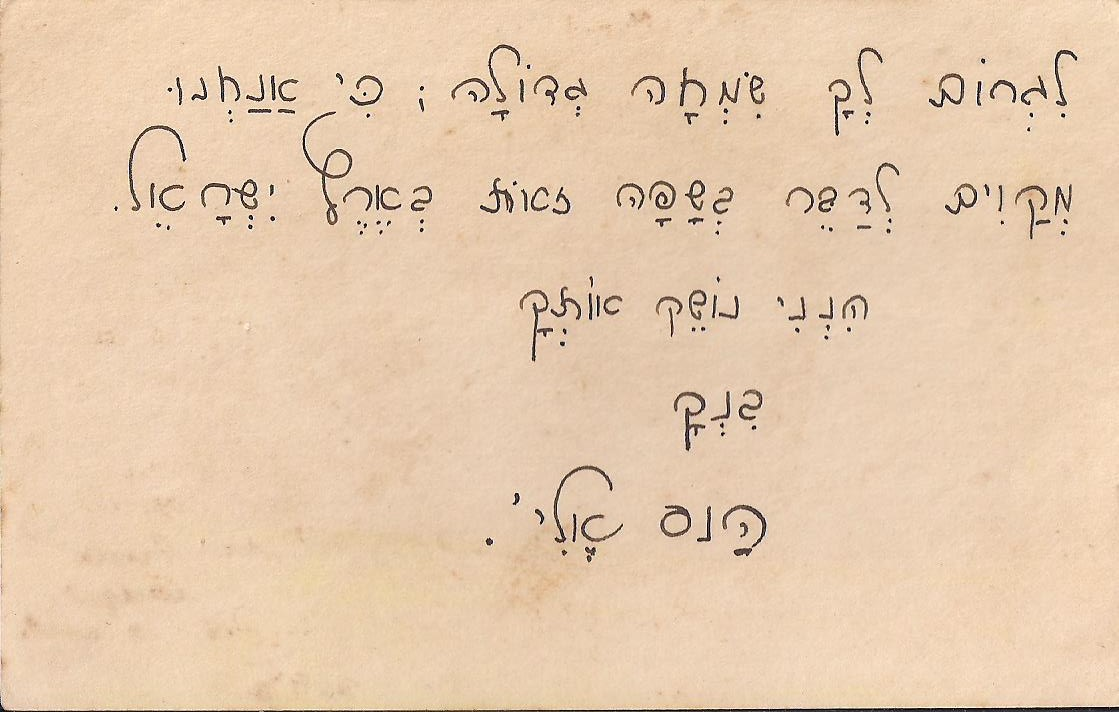 לִגְרוֹם לְךָ שִׂמְחָה גְדוֹלָה ; כִּי אַנַחְנוּ
מְקַוִים לְדַבֵּר בְּשָׂפָה זאוֹת בְּאֶרֶץ יִשְׂרָאֵל.
הִנְנִי נוֹשֵׁק אוֹתְךָ
בִּנְךָ
הַנס אֶלִי' .